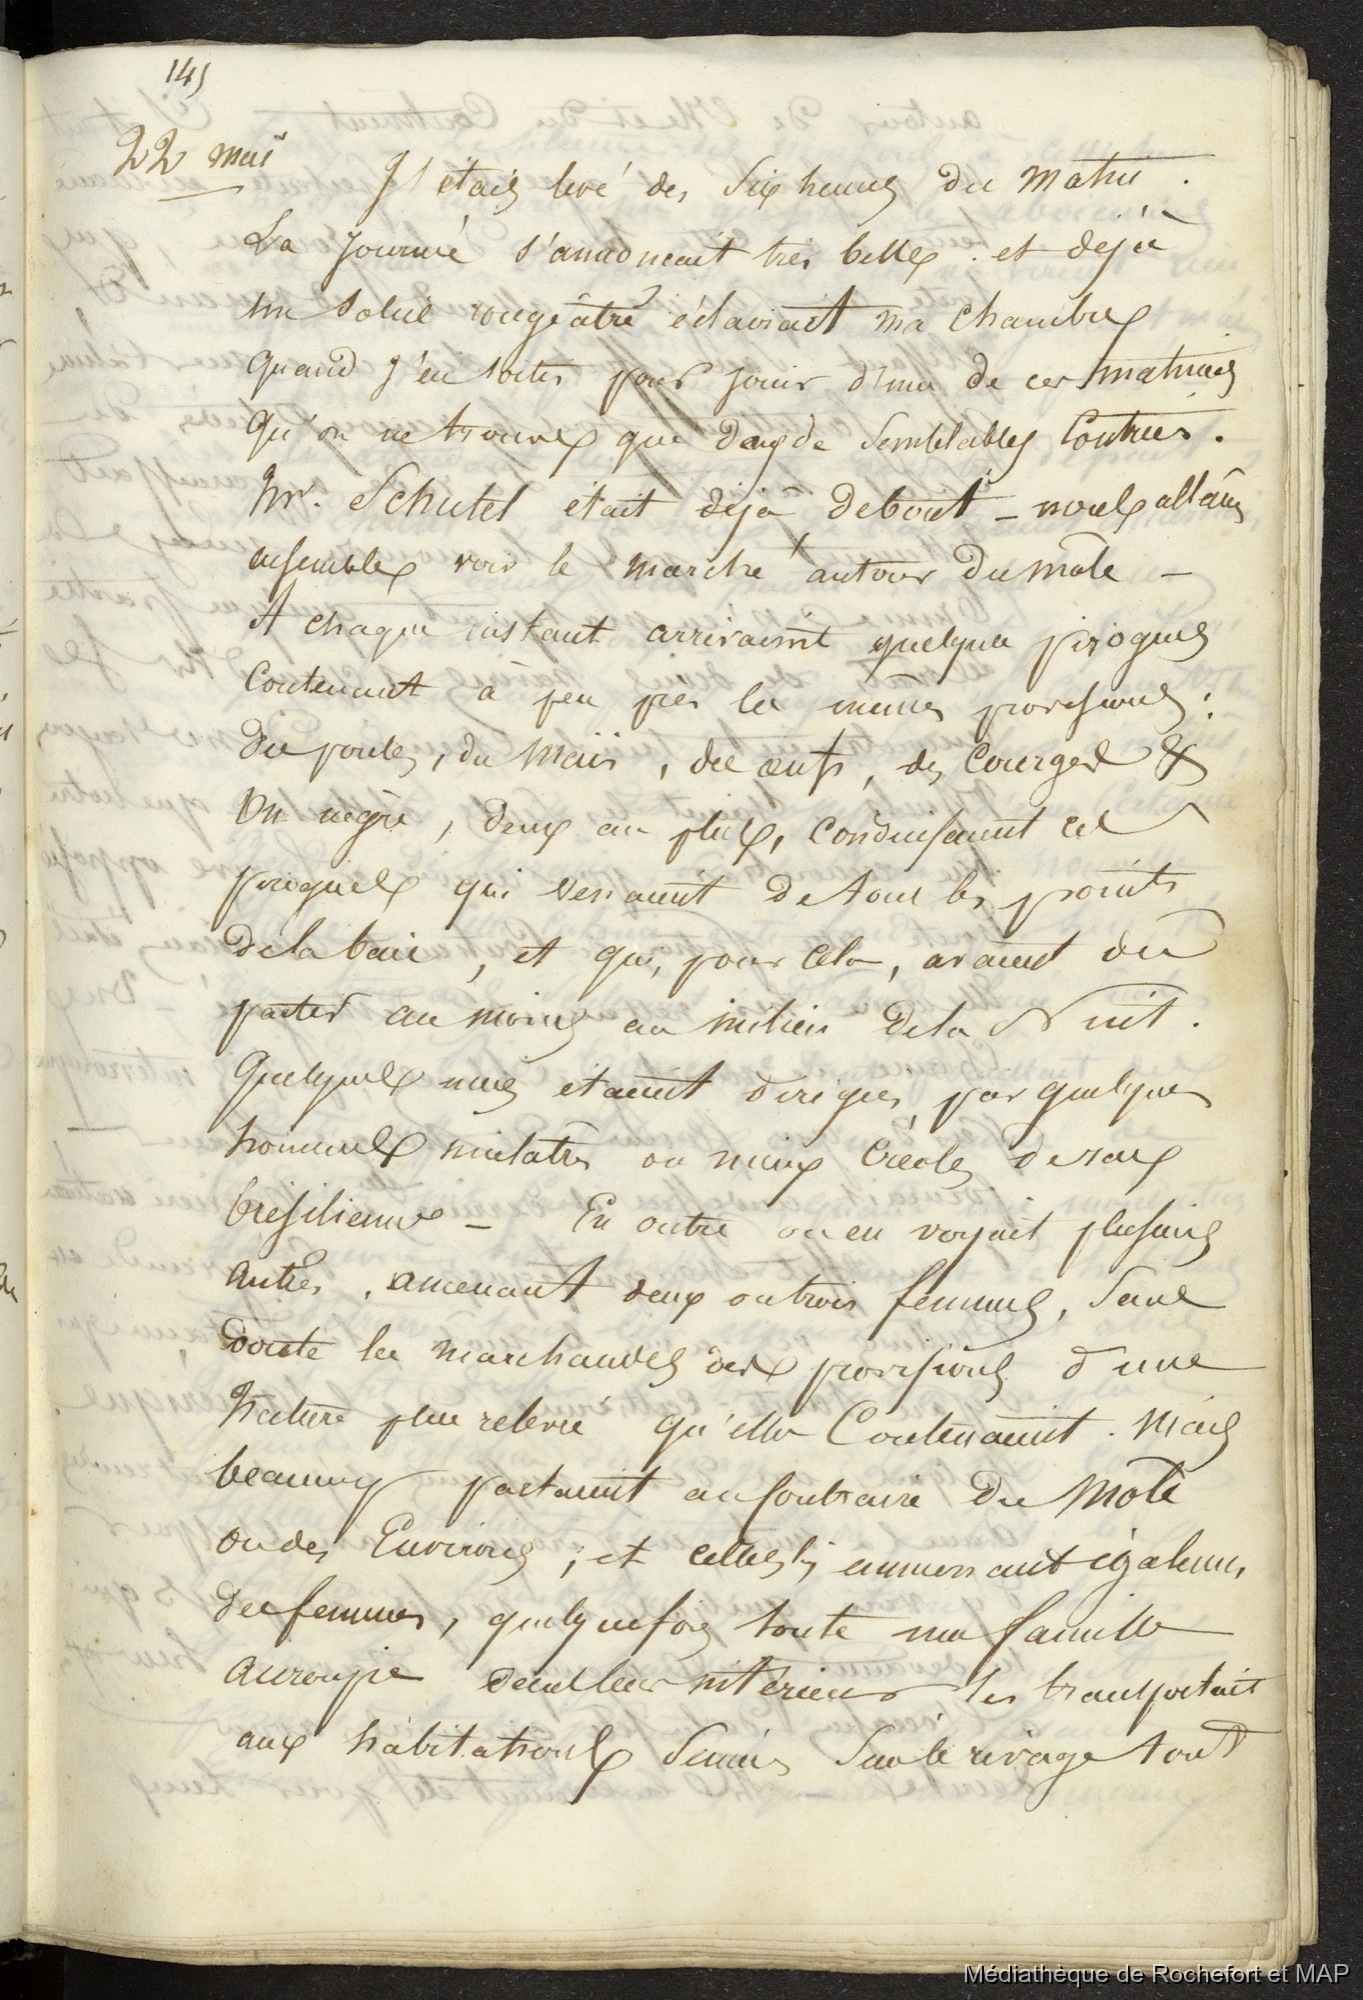 145
22 mai
J'étais levé des Six heures du matin.
La journée s'annoncait très belle. et dejà
un soleil rougeâtre éclairait ma chambre
quand j'en sortis pour jouir d'une de ces matinées
qu'on ne trouve que dans de Semblables Contrées.
Mr. Schutel était déjà debout – nous allâmes
ensemble voir le marché autour du mole –
A chaque instant arrivaient quelques pirogues
Contenant à peu près les mêmes provisions:
des poules, du Maïs, des œufs, des Courges &
Un nègre, deux au plus, conduisaient ces
pirogues qui venaient de tous les points
de la baie, et qui, pour cela, avaient du
partir au moins au milieu de la Nuit.
Quelques unes étaient dirigées, par quelques
hommes mulâtres ou mieux Créoles de race
brésilienne – En outre on en voyait plusieurs
autres, amenant deux ou trois femmes, Sans
doute les marchandes des provisions d'une
Nature plus relevée qu'elles Contenaient. Mais
beaucoup partaient au Contraire du Mole
ou des Environs, et celles ci emmenant égalem.
des femmes, quelquefois toute une famille
accroupie dans leur intérieur les transportait
aux habitations Semées Sur le rivage tout
Médiathèque de Rochefort et MAP